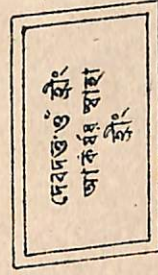 দেবদত্ত ওঁ হ্রীং
আকর্ষয় স্বাহা
হ্রীং